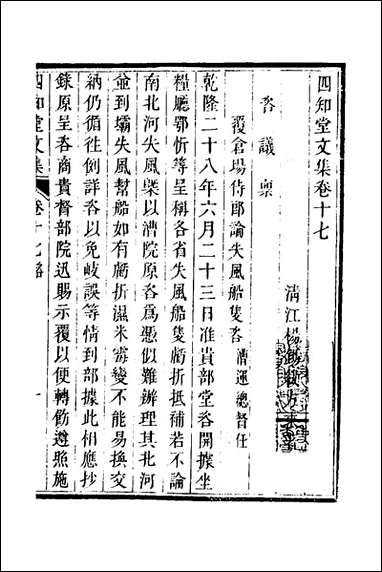 四知堂文集卷十七
清江楊錫紱方來著
咨議稟
覆倉場侍郎論失風船隻咨 漕運總督任
乾隆二十八年六月二十三日准貴部堂咨開據坐
糧廳鄂忻等呈稱各省失風船隻虧折抵補若不論
南北河失風槩以漕院原咨爲憑似難辦理其北河
並到壩失風幫船如有虧折濕米霉變不能易換交
納仍循徃例詳咨以免岐誤等情到部據此相應抄
錄原呈咨商貴督部院迅賜示覆以便轉飭遵照施
四知堂文集
卷十七咨
一